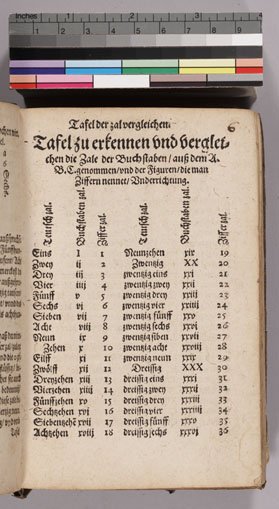 Inches 1 2 3 4
Tafel der zal vergleichen.
6
Tafel zu erkennen vnd verglei-
chen die Zale der Buchstaben / auß dem A.
B.C. genommen / vnd der Figuren / die man
Ziffern nennet / Vnderrichtung.
Teutsch zal. Buchstaben zal. Ziffer zal. Teutsch zal. Buchstaben zal. Ziffer zal.
Eins I 1 Neunzehen xix 19
Zwey ij 2 Zwenzig XX 20
Drey iij 3 zwenzig eins xxi 21
Vier iiij 4 zwenzig zwey xxij 22
Fünff v 5 zwenzig drey xxiij 23
Sechs vi 6 zwenzig vier xxiiij 24
Sieben vij 7 zwenzig fünff xxv 25
Acht viij 8 zwenzig sechs xxvi 26
Neun ix 9 zwenzig siben xxvij 27
Zehen x 10 zwenzig acht xxviij 28
Eilff xi 11 zwenzig neun xxix 29
Zwölff xij 12 Dreissig XXX 30
Dreyzehen xiij 13 dreissig eins xxxi 31
Vierzehen xiiij 14 dreissig zwey xxxij 32
Fünffzehen xv 15 dreissig drey xxxiij 33
Sechtzehen xvi 16 dreissig vier xxxiiij 34
Siebentzehē xvij 17 dreissig fünff xxxv 35
Achtzehen xviij 18 dreissig sechs xxxvi 36